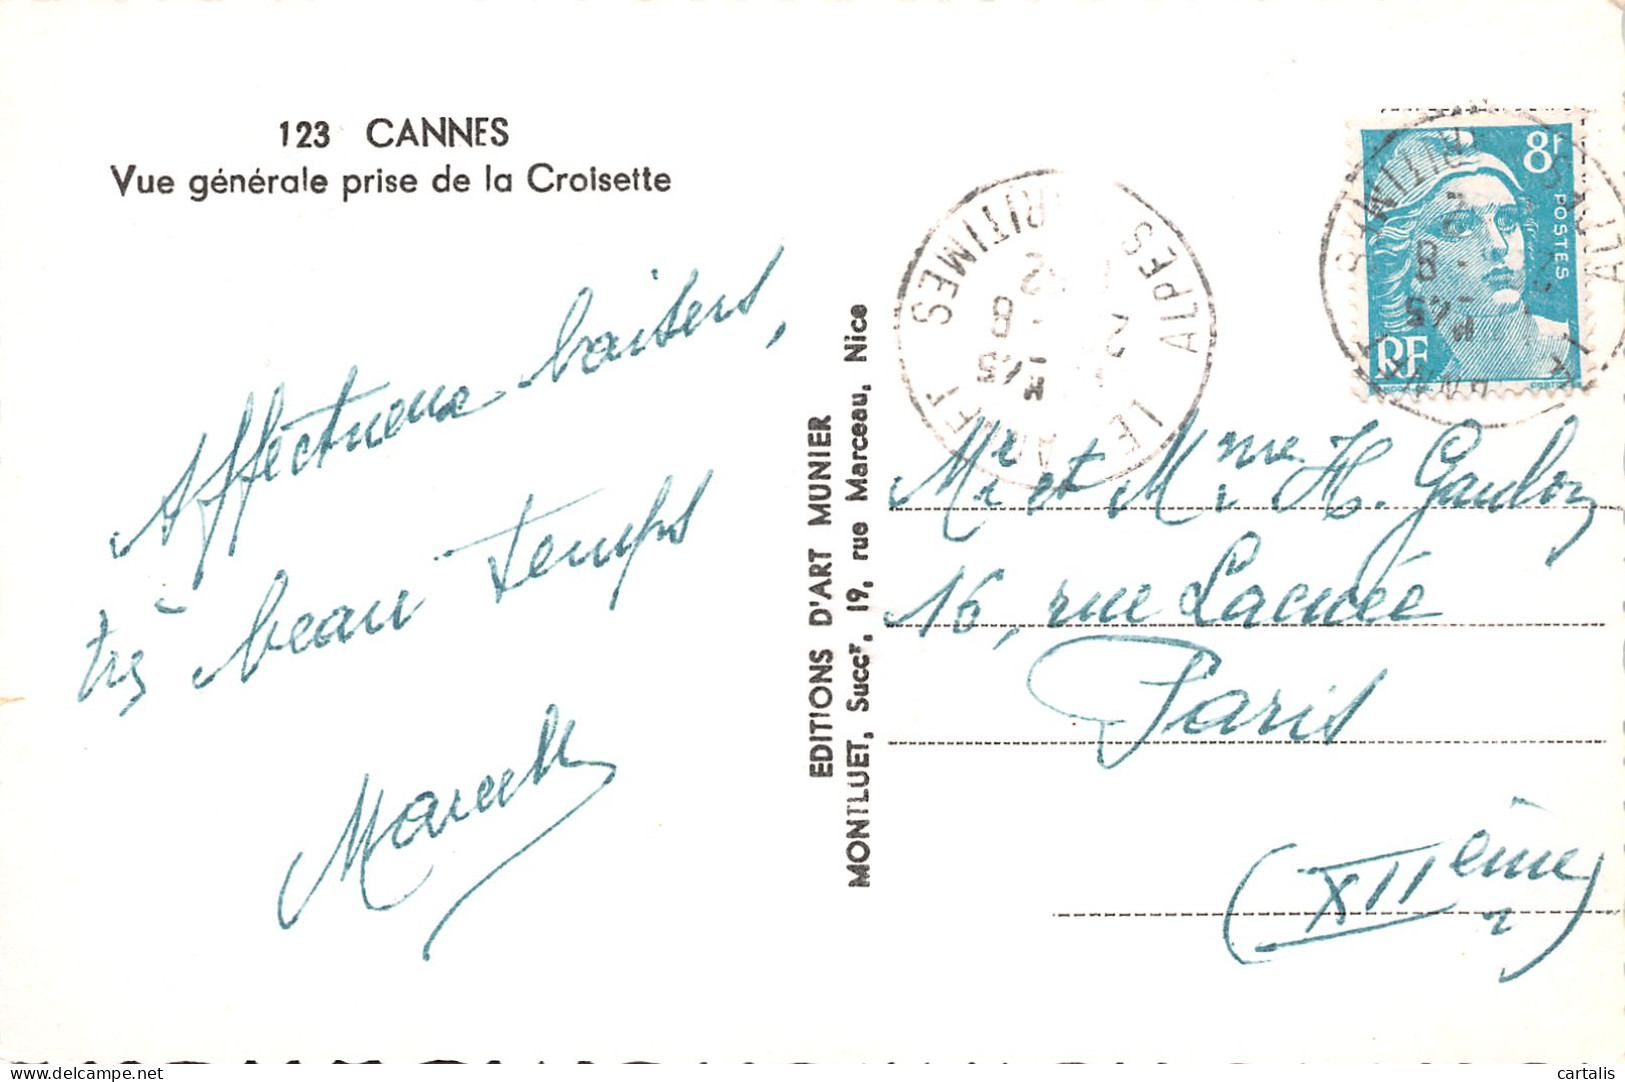 123 CANNES
Vue générale prise de la Croisette
Affectueux baisers,
très beau temps
Marcelle
EDITIONS D'ART MUNIER
MONTLUET, Succʳ, 19, rue Marceau, Nice
ALPES MARITIMES
LE CANNET
8F
POSTES
RF
Mr et Mme H. Gaulon
16, rue Lacuée
Paris
(XIIème)
cartalis
delcampe.net